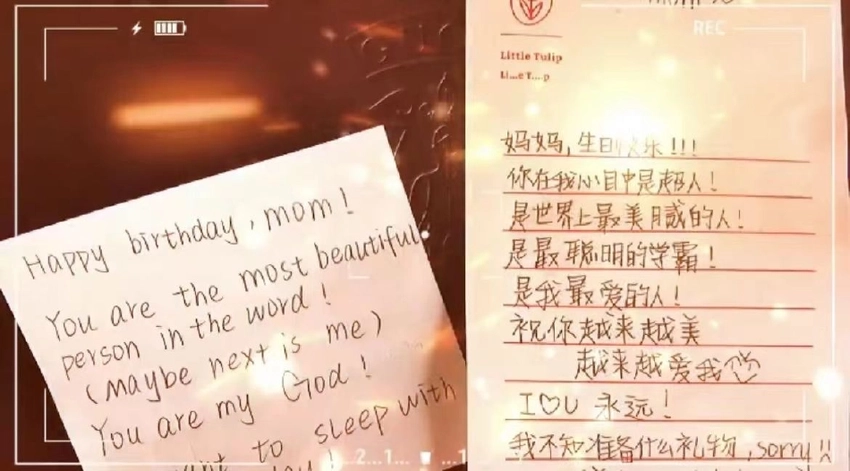 REC
Happy birthday, mom!
You are the most beautiful
person in the word!
(Maybe next is me)
You are my God!
to sleep with
Little Tulip
妈妈,生日快乐!!!
你在我心目中是超人!
是世界上最美月感的人!
是最聪明的学霸!
是我最爱的人!
祝你越来越美
越来越爱我
I♡U 永远!
我不知准备什么礼物,sorry!!